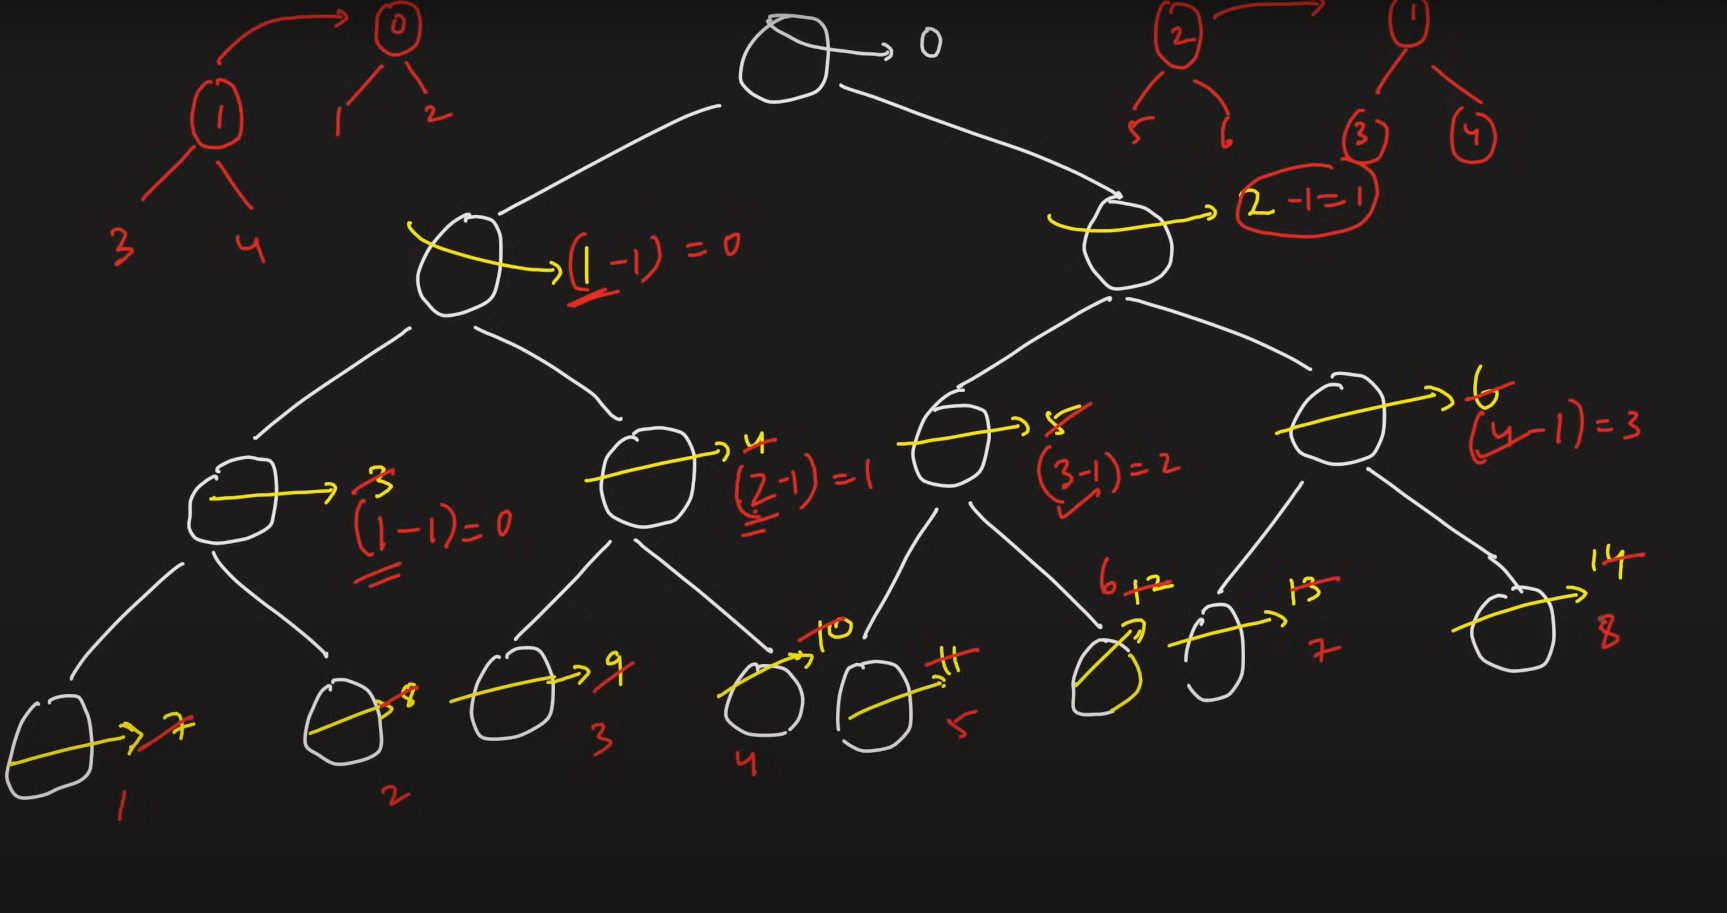 0
1
1 2
3 4
0
2
5 6
1
3 4
(1-1) = 0
2 -1=1
3
(1-1)=0
4
(2-1)=1
5
(3-1)=2
6
(4-1)=3
7
1
8
2
9
3
10
4
11
5
6 12
13
7
14
8